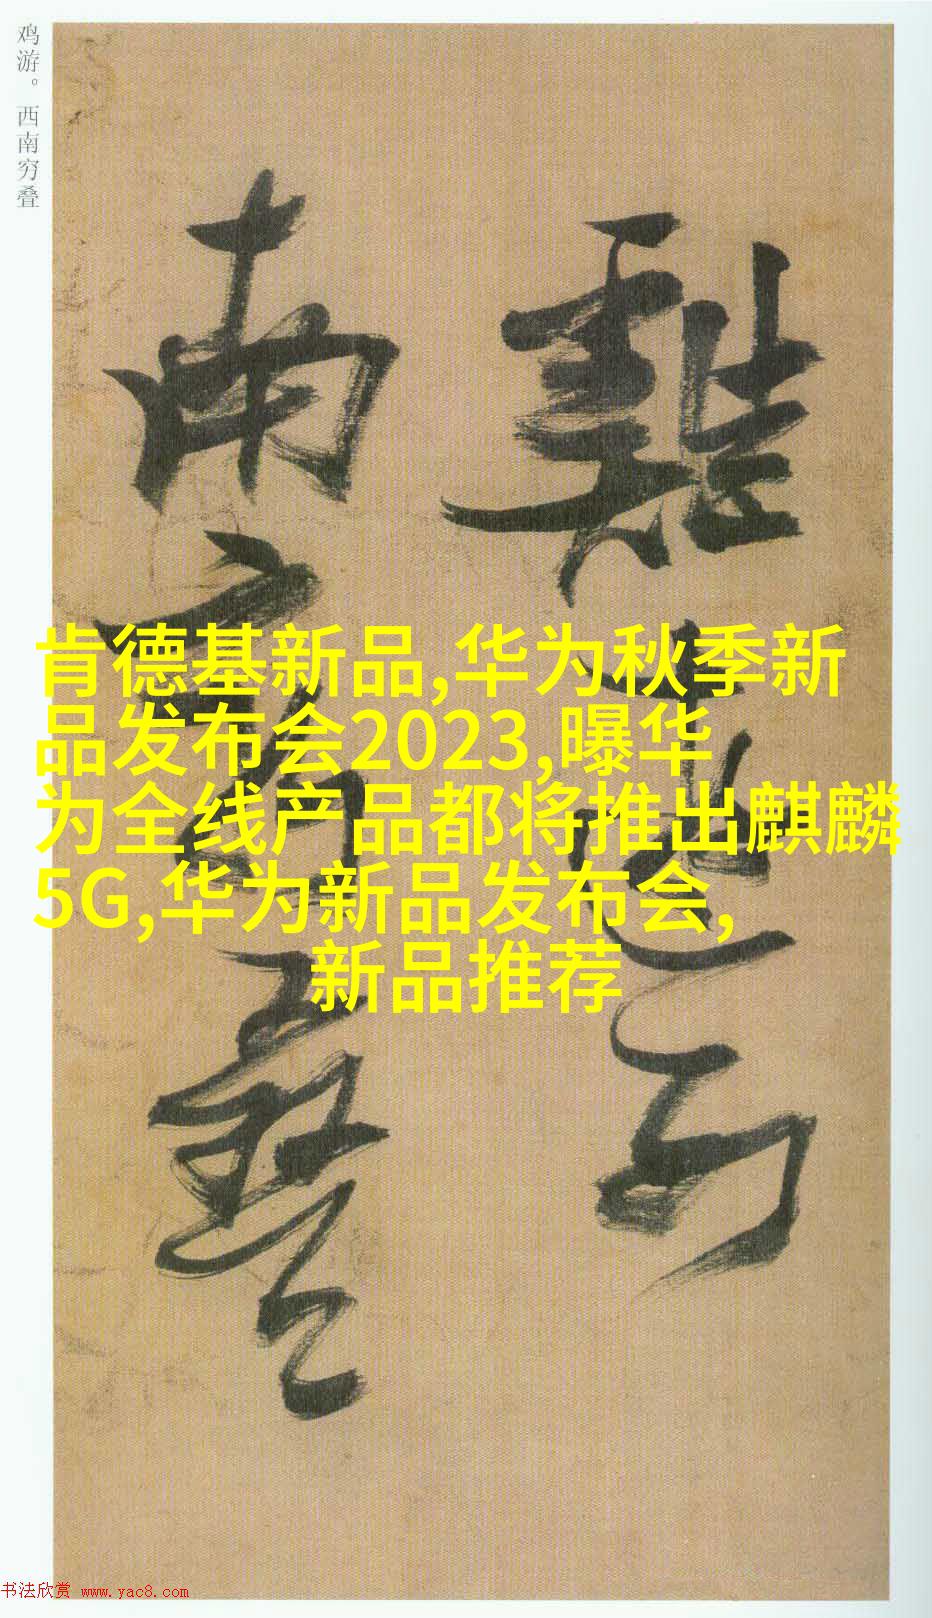 鸡游。西南穷叠
雞遊西
南窮疊
肯德基新品,华为秋季新
品发布会2023,曝华
为全线产品都将推出麒麟
5G,华为新品发布会,
新品推荐
书法欣赏 www.yac8.com